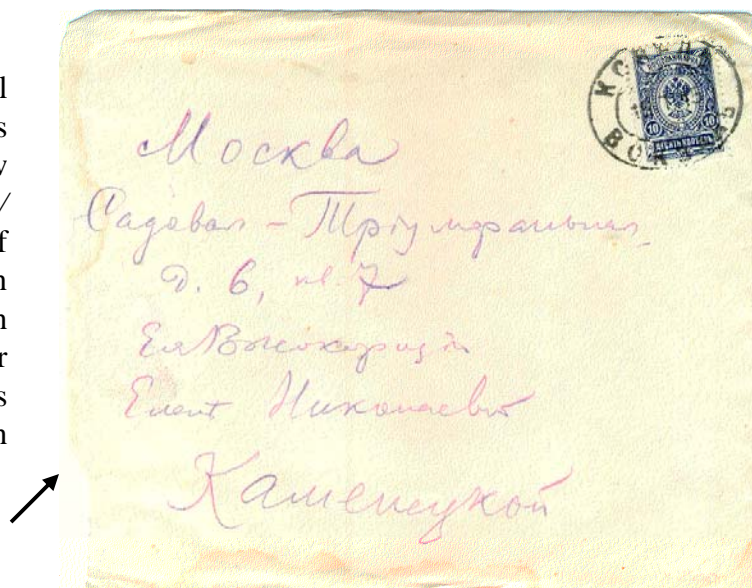 l
s
v
/
f
n
n
r
s
n
Москва
Садовая - Тріумфальная,
д. 6, кв. 7
Ея Высокородію
Еленѣ Николаевнѣ
Каменецкой
КОВЕЛЬ
10 10
ДЕСЯТЬ КОПѢЕКЪ